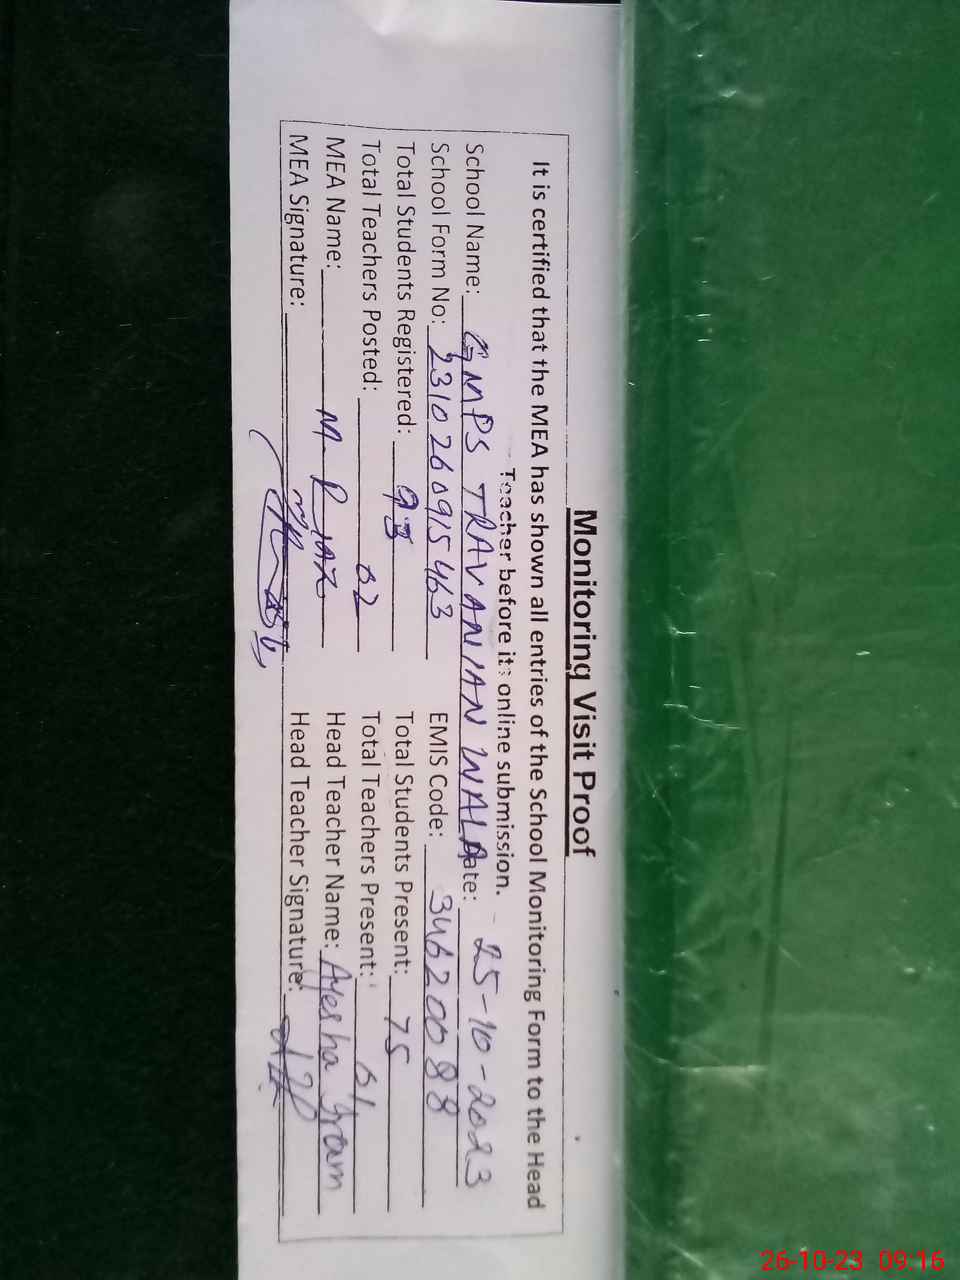 Monitoring Visit Proof
It is certified that the MEA has shown all entries of the School Monitoring Form to the Head
Teacher before its online submission.
School Name: GMPS TRAVANIAN WALA Date: 25-10-2023
School Form No: 2310260915463 EMIS Code: 34620088
Total Students Registered: 93 Total Students Present: 75
Total Teachers Posted: 02 Total Teachers Present: 01
MEA Name: M. RIAZ Head Teacher Name: Ayesha
MEA Signature: Head Teacher Signature:
26-10-23 09:16